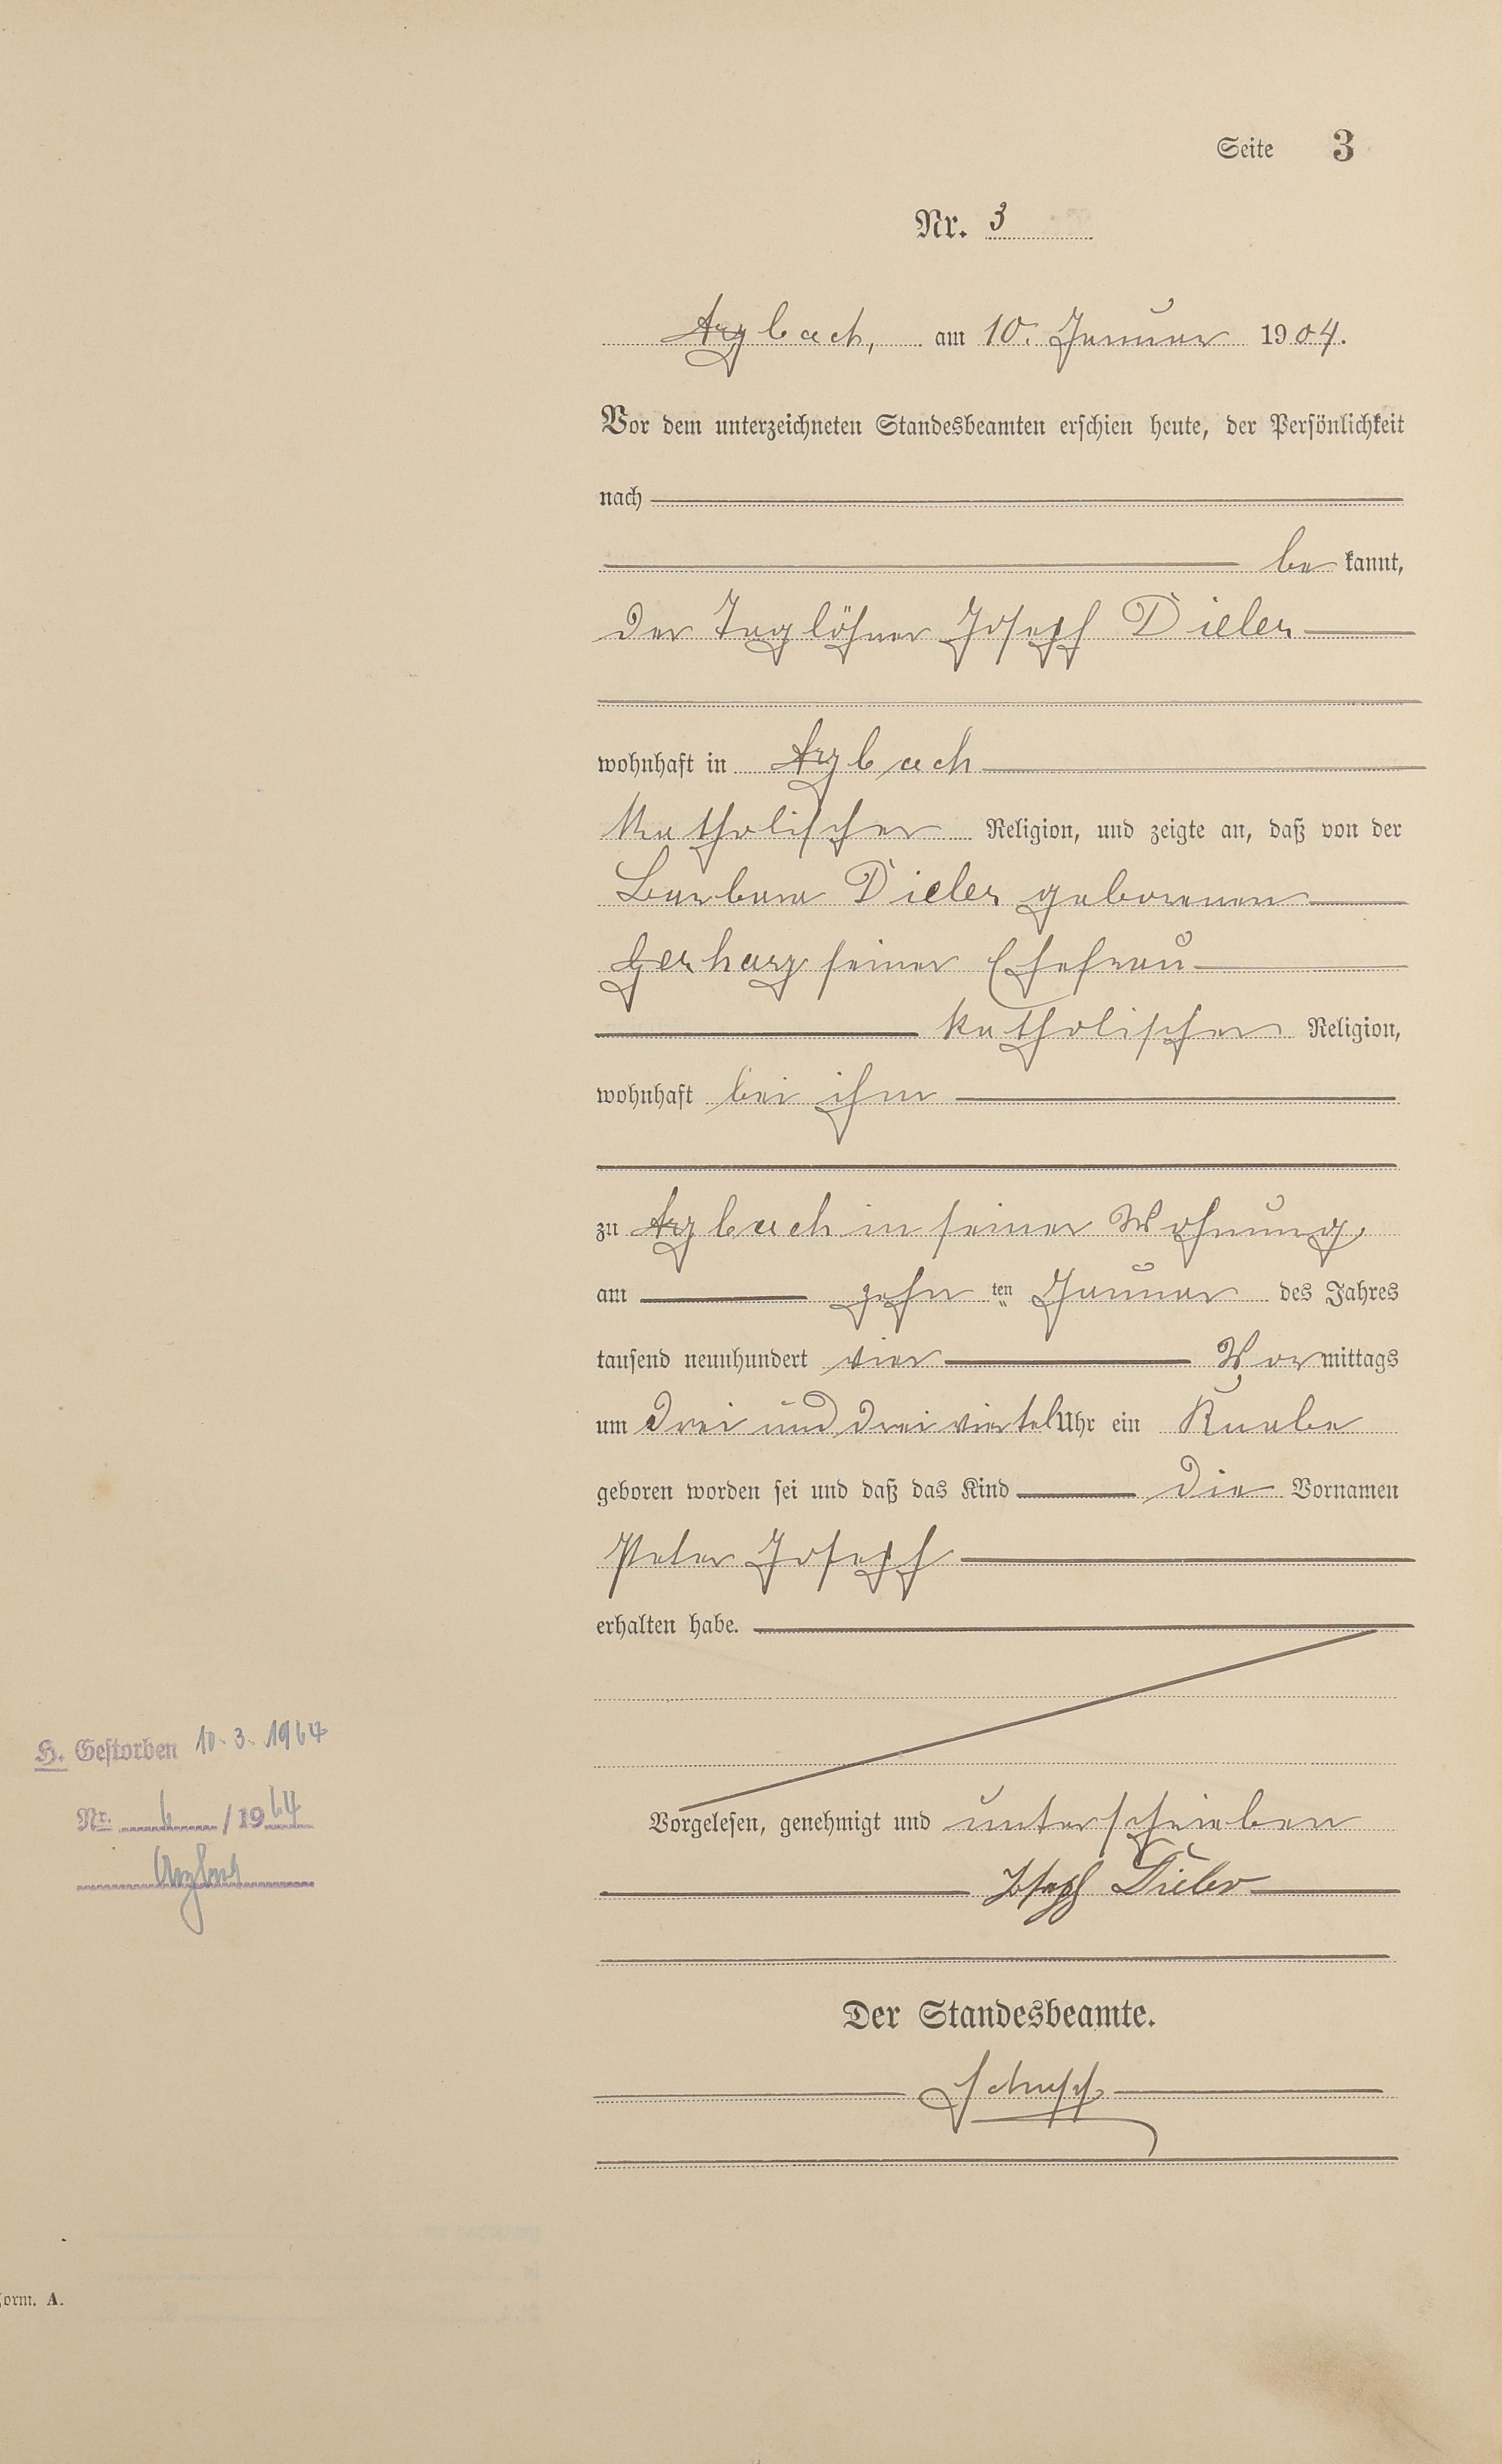 Seite 3
Nr. 3
Arzbach, am 10. Januar 1904.
Vor dem unterzeichneten Standesbeamten erschien heute, der Persönlichkeit
nach
be kannt,
der Taglöhner Joseph Dieler
wohnhaft in Arzbach
katholischer Religion, und zeigte an, daß von der
Barbara Dieler geborenen
Gerharz seiner Ehefrau
katholischer Religion,
wohnhaft bei ihm
zu Arzbach in seiner Wohnung
am zehn ten Januar des Jahres
tausend neunhundert vier Vormittags
um drei und dreiviertel Uhr ein Knabe
geboren worden sei und daß das Kind die Vornamen
Peter Joseph
erhalten habe.
H. Gestorben 10.3.1964
Nr. 6 /1964
Arzbach
Vorgelesen, genehmigt und unterschrieben
Joseph Dieler
Der Standesbeamte.
Schupp
Form. A.